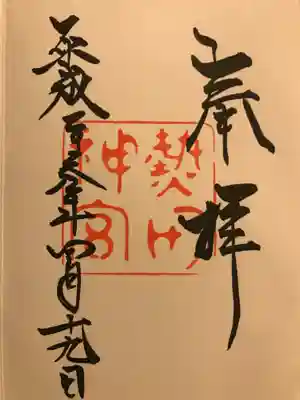 奉拝
熱田
神宮
平成 年四月十九日